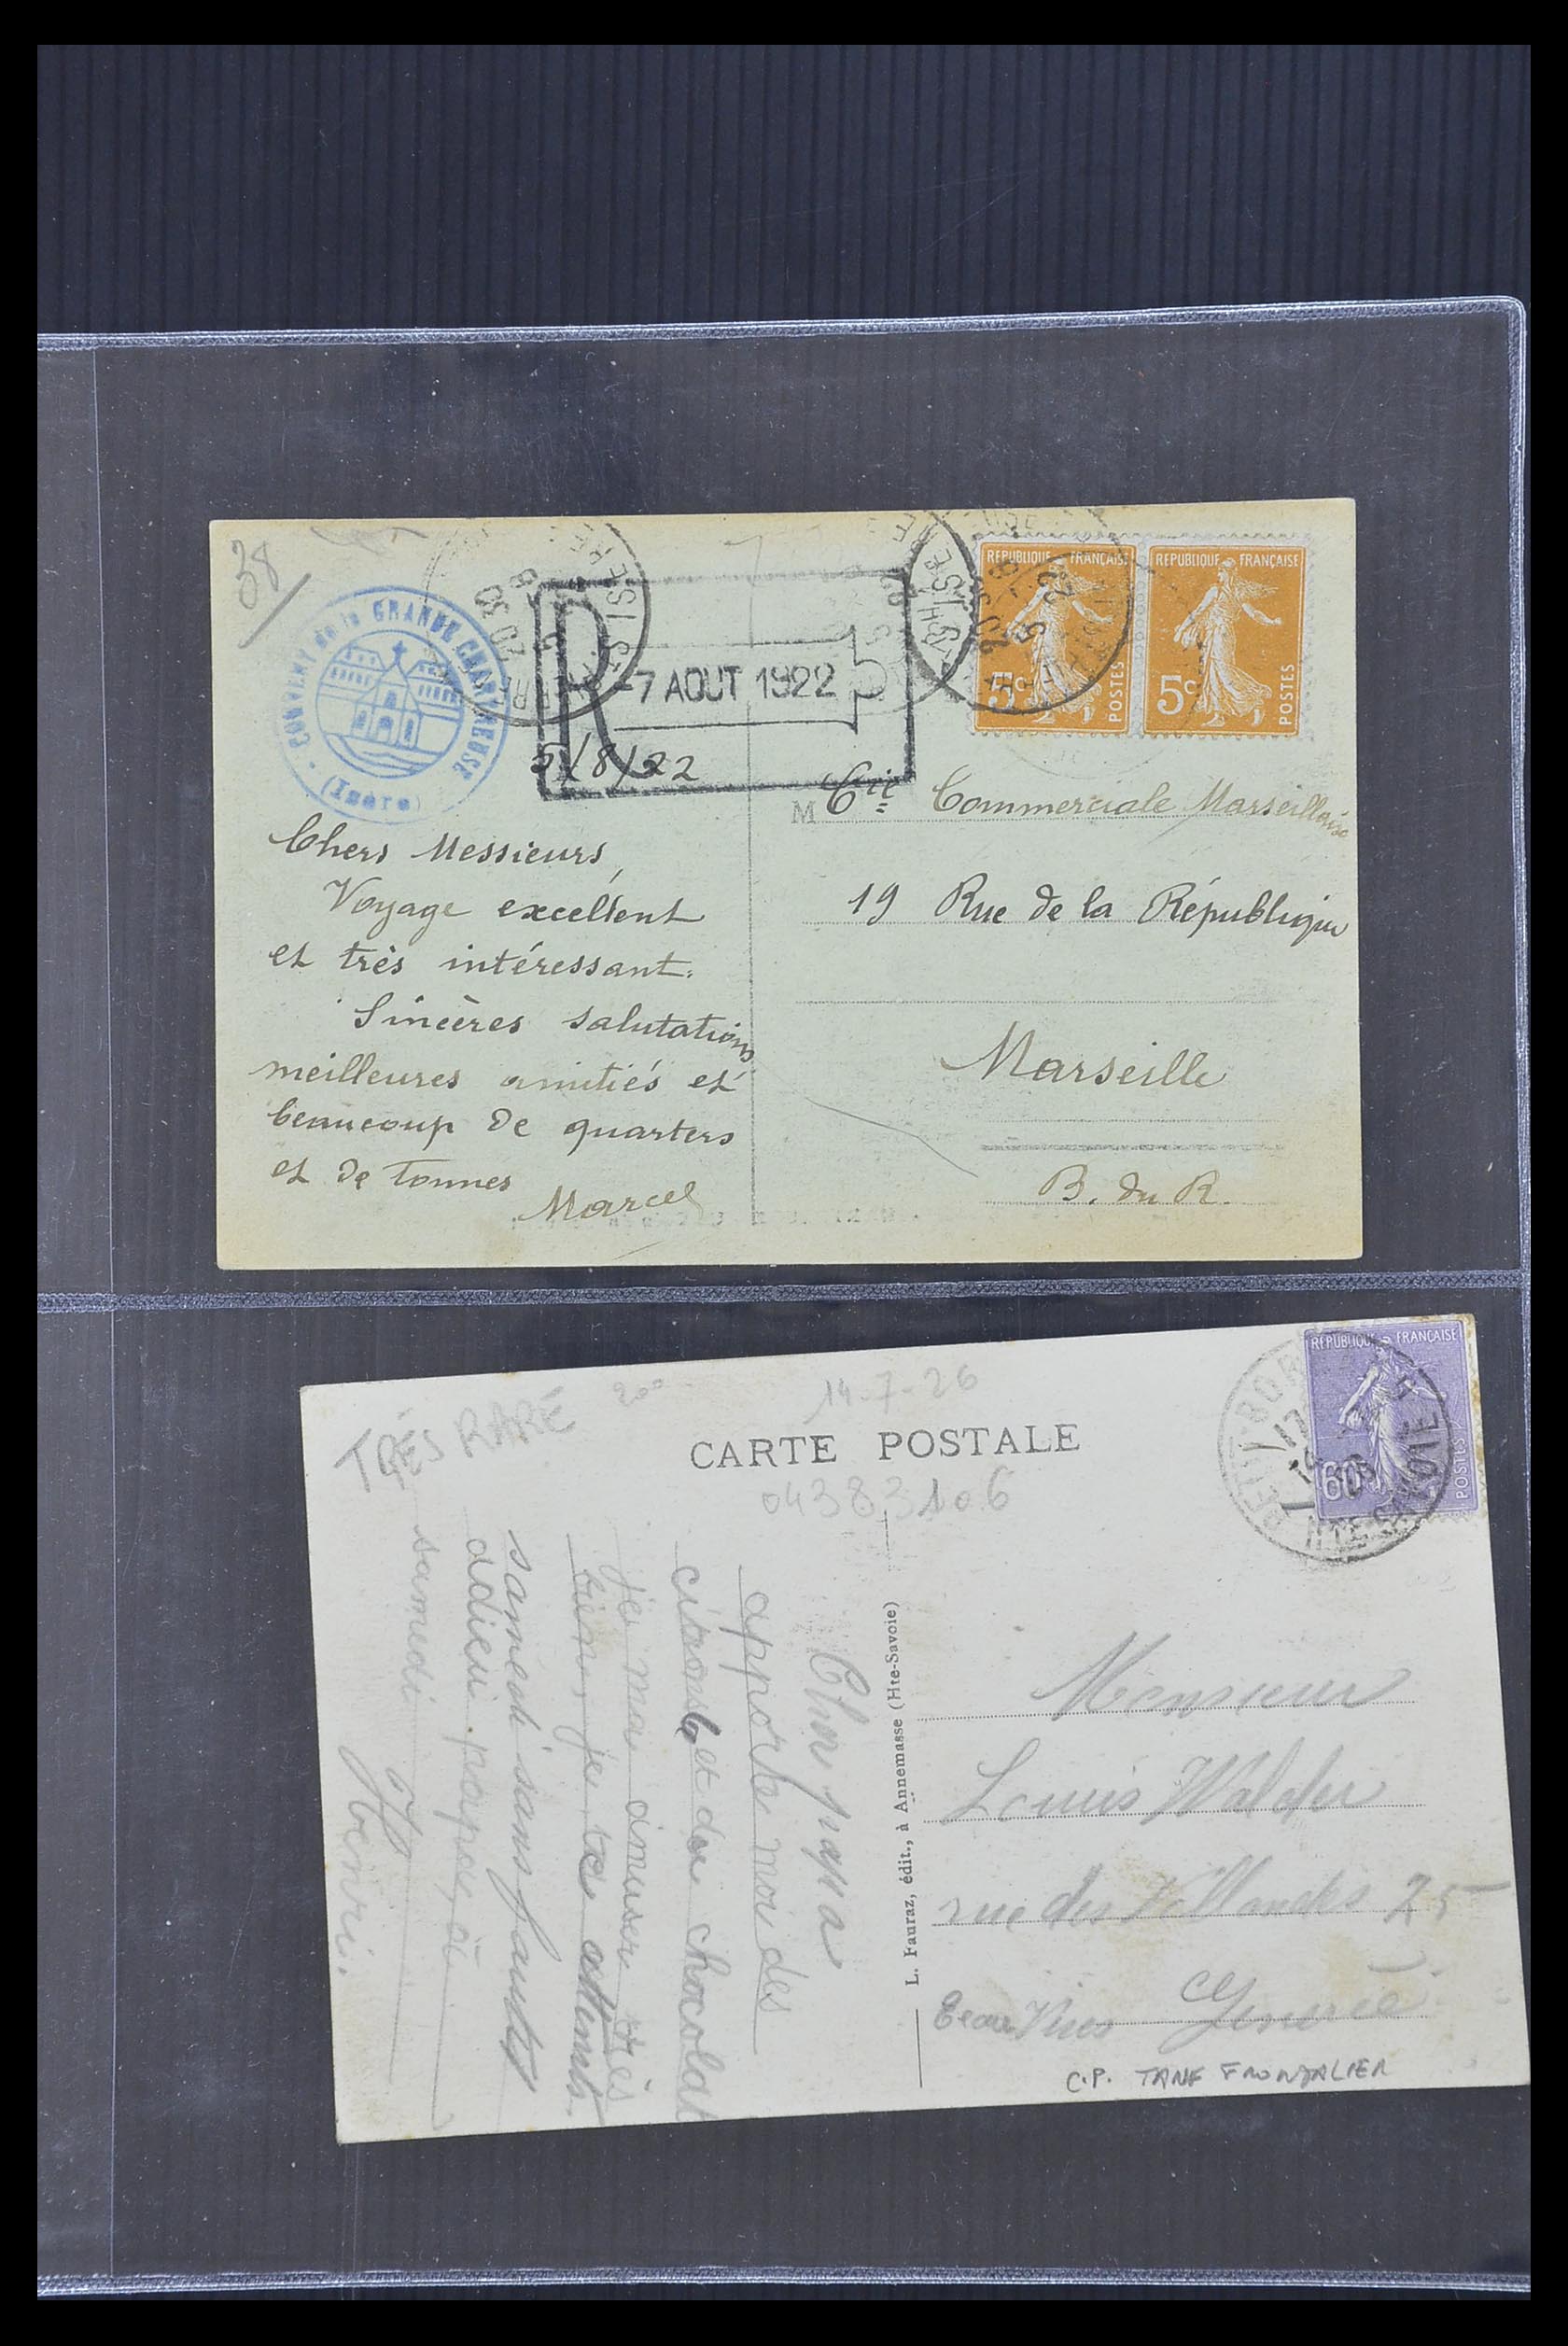 38
COUVENT de la GRANDE CHARTREUSE
(Isère)
R
-7 AOUT 1922
REPUBLIQUE FRANÇAISE
5c
POSTES
REPUBLIQUE FRANÇAISE
5c
POSTES
5/8/22
Chers Messieurs,
Voyage excellent
et très intéressant.
Sincères salutations
meilleures amitiés et
beaucoup de quarters
et de tonnes
Marcel
M
Cie Commerciale Marseillaise
19 Rue de la République
Marseille
B. du R.
TRÈS RARE
200
14-7-26
CARTE POSTALE
04383106
REPUBLIQUE FRANÇAISE
60
POSTES
HTE SAVOIE
Cher papa
apporte moi des
citrons et du chocolat
bien je te attends
samedi sans faute
adieu papa, à
samedi
Henri.
L. Fauraz, édit., à Annemasse (Hte-Savoie)
Monsieur
Louis Walder
rue des Vollandes 25
Eaux Vives Genève
C.P. TARIF FRONTALIER